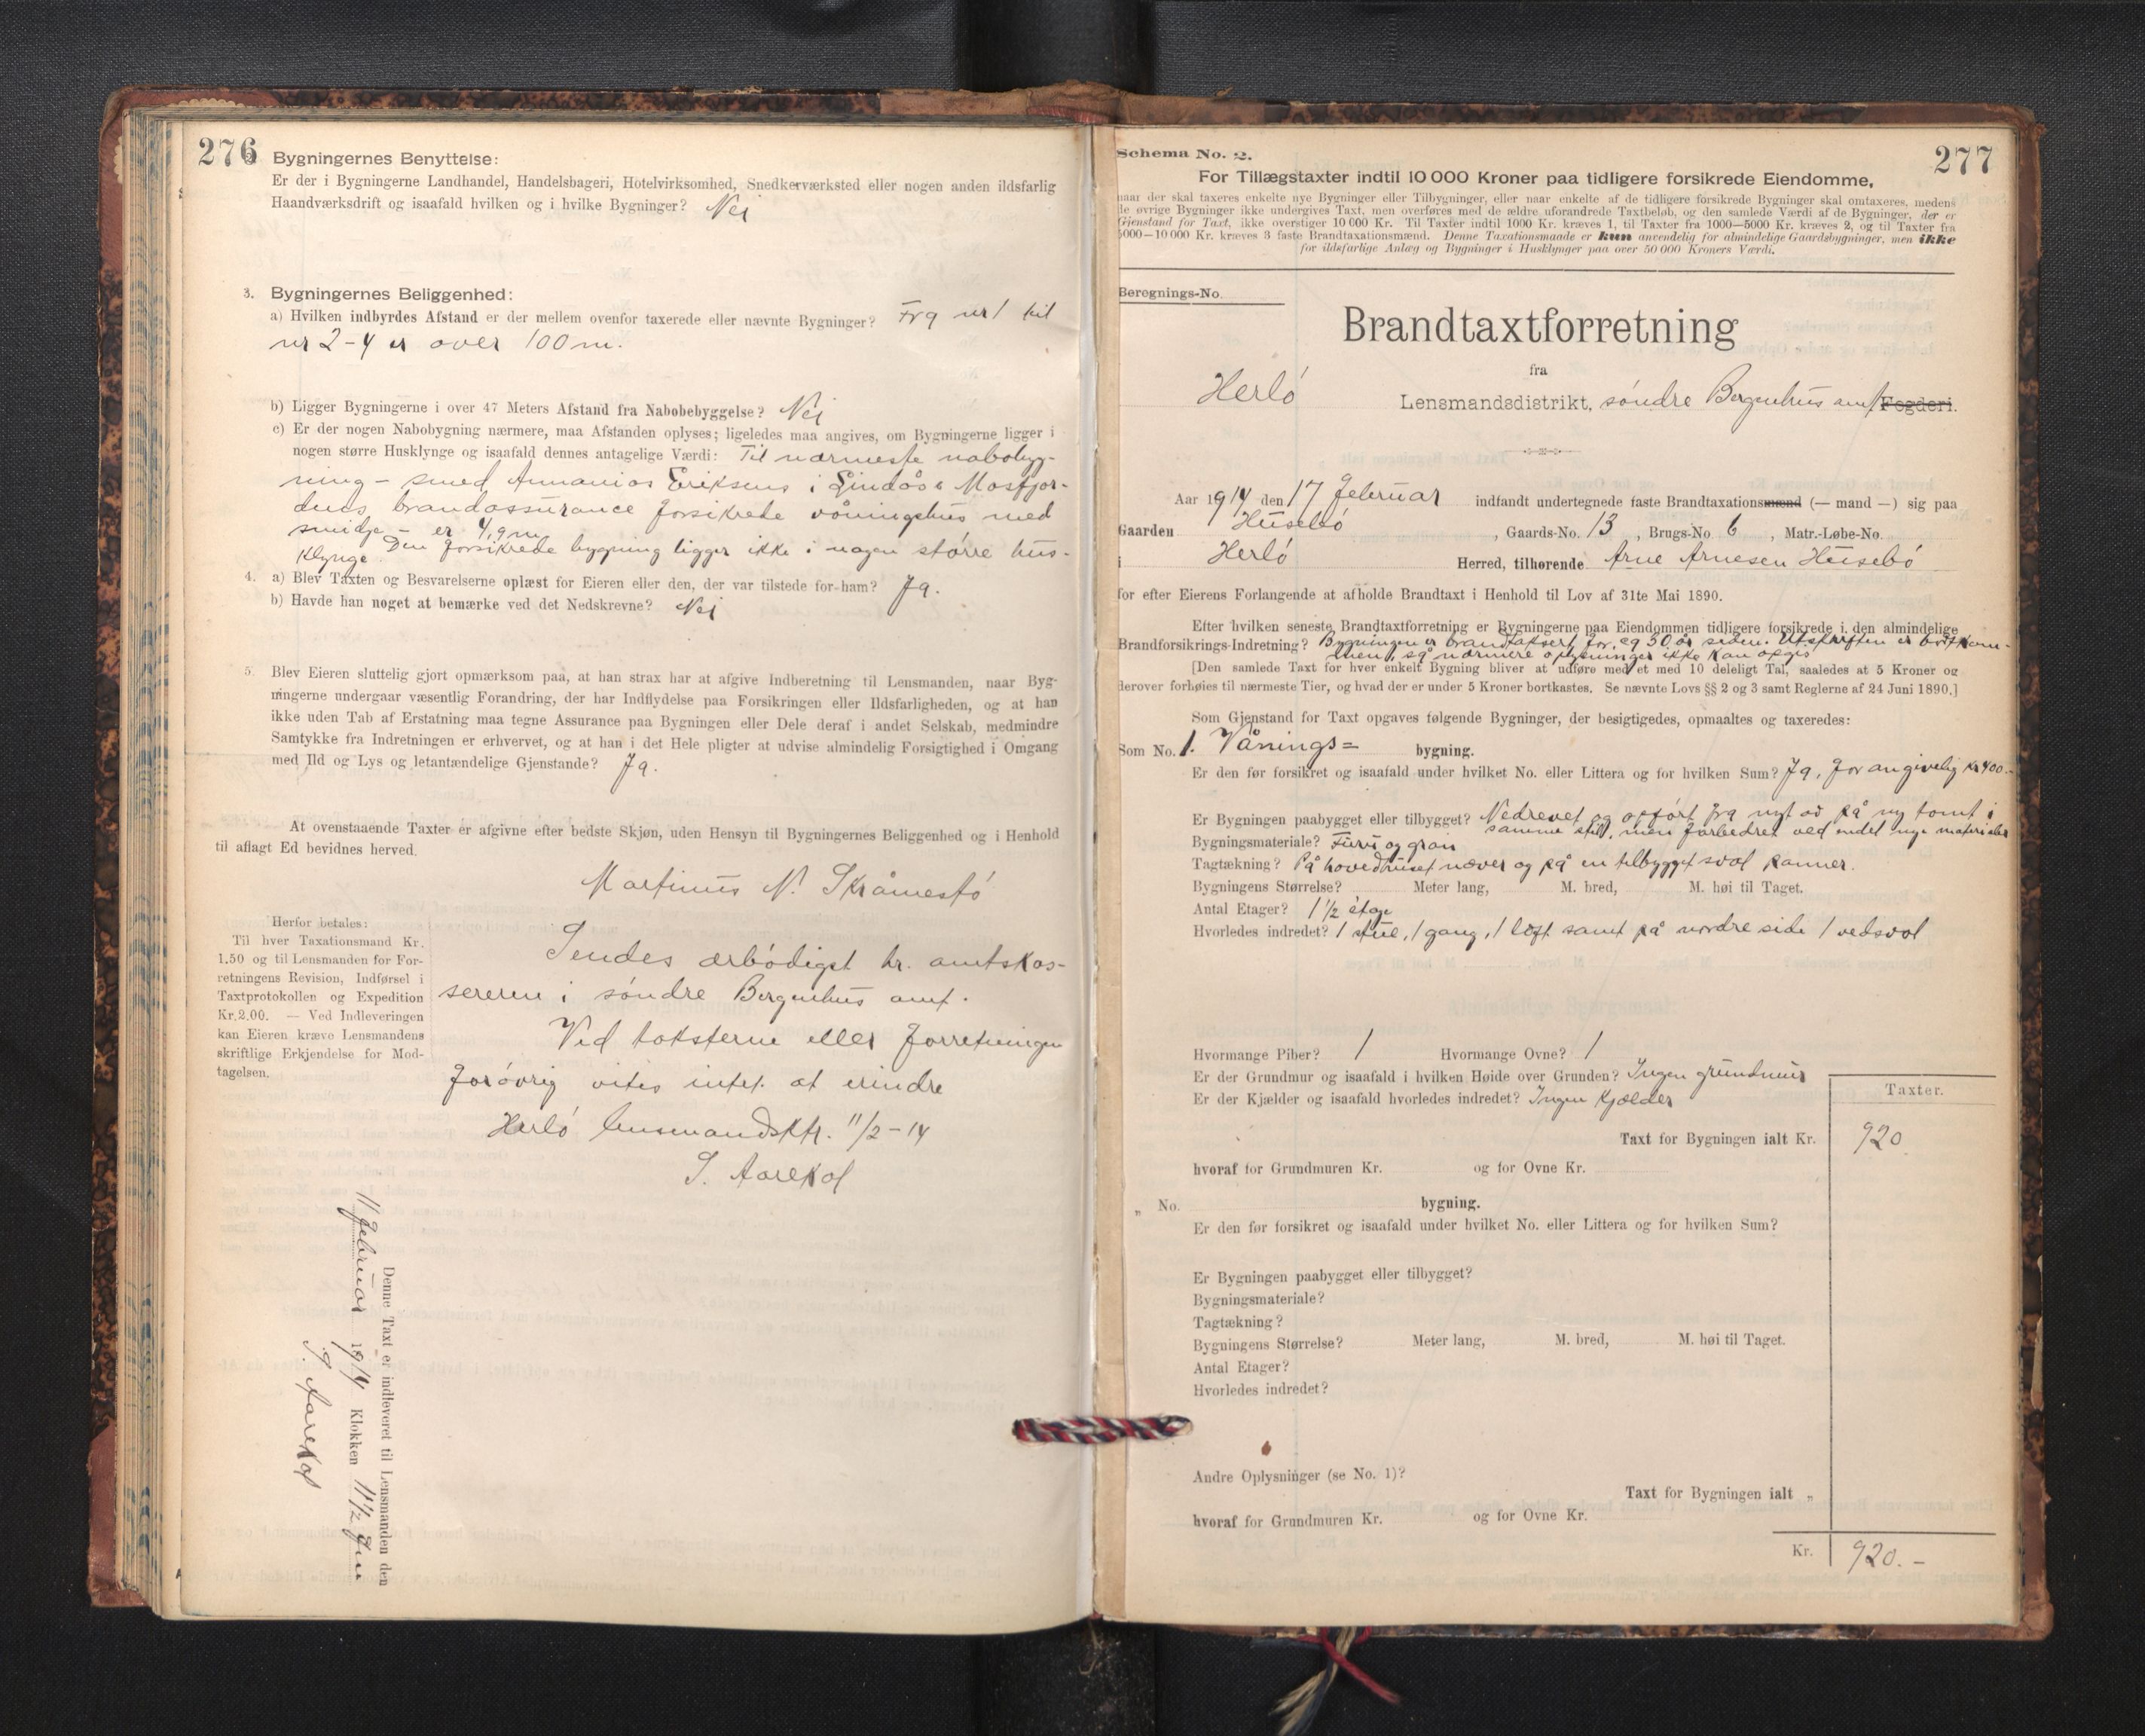 276
Bygningernes Benyttelse:
Er der i Bygningerne Landhandel, Handelsbageri, Hotelvirksomhed, Snedkerværksted eller nogen anden ildsfarlig
Haandværksdrift og isaafald hvilken og i hvilke Bygninger? Nei
3. Bygningernes Beliggenhed:
a) Hvilken indbyrdes Afstand er der mellem ovenfor taxerede eller nævnte Bygninger? Fra nr 1 til
nr 2-4 er over 100 m.
b) Ligger Bygningerne i over 47 Meters Afstand fra Nabobebyggelse? Nei
c) Er der nogen Nabobygning nærmere, maa Afstanden oplyses; ligeledes maa angives, om Bygningerne ligger i
nogen større Husklynge og isaafald dennes antagelige Værdi: Til nærmeste nabobyg-
ning - smed Annanias Eriksens i Lindås & Mosfjor-
dens brandassurance forsikrede våningshus med
smidje - er 4,9 m
Den forsikrede bygning ligger ikke i nogen större hus-
klynge.
4. a) Blev Taxten og Besvarelserne oplæst for Eieren eller den, der var tilstede for ham? Ja.
b) Havde han noget at bemærke ved det Nedskrevne? Nei
5. Blev Eieren sluttelig gjort opmærksom paa, at han strax har at afgive Indberetning til Lensmanden, naar Byg-
ningerne undergaar væsentlig Forandring, der har Indflydelse paa Forsikringen eller Ildsfarligheden, og at han
ikke uden Tab af Erstatning maa tegne Assurance paa Bygningen eller Dele deraf i andet Selskab, medmindre
Samtykke fra Indretningen er erhvervet, og at han i det Hele pligter at udvise almindelig Forsigtighed i Omgang
med Ild og Lys og letantændelige Gjenstande? Ja.
At ovenstaaende Taxter er afgivne efter bedste Skjøn, uden Hensyn til Bygningernes Beliggenhed og i Henhold
til aflagt Ed bevidnes herved.
Martinus N. Skråmestö
Herfor betales:
Til hver Taxationsmand Kr.
1.50 og til Lensmanden for For-
retningens Revision, Indførsel i
Taxtprotokollen og Expedition
Kr. 2.00. — Ved Indleveringen
kan Eieren kræve Lensmandens
skriftlige Erkjendelse for Mod-
tagelsen.
Sendes ærbödigst hr. amtskas-
sereren i söndre Bergenhus amt.
Ved taksterne eller forretningen
forövrig vites intet at erindre
Herlö lensmandsktr. 11/2-14
S. Aarekol
Denne Taxt er indleveret til Lensmanden den
11 februar 1914 Klokken 11 1/2 fm
S. Aarekol
277
Schema No. 2.
For Tillægstaxter indtil 10 000 Kroner paa tidligere forsikrede Eiendomme,
naar der skal taxeres enkelte nye Bygninger eller Tilbygninger, eller naar enkelte af de tidligere forsikrede Bygninger skal omtaxeres, medens
de øvrige Bygninger ikke undergives Taxt, men overføres med de ældre uforandrede Taxtbeløb, og den samlede Værdi af de Bygninger, der er
Gjenstand for Taxt, ikke overstiger 10 000 Kr. Til Taxter indtil 1000 Kr. kræves 1, til Taxter fra 1000—5000 Kr. kræves 2, og til Taxter fra
5000—10 000 Kr. kræves 3 faste Brandtaxationsmænd. Denne Taxationsmaade er kun anvendelig for almindelige Gaardsbygninger, men ikke
for ildsfarlige Anlæg og Bygninger i Husklynger paa over 50 000 Kroners Værdi.
Beregnings-No.
Brandtaxtforretning
fra
Herlö Lensmandsdistrikt, söndre Bergenhus amt Fogderi.
Aar 1914 den 17 februar indfandt undertegnede faste Brandtaxationsmænd (— mand —) sig paa
Gaarden Husebö, Gaards-No. 13, Brugs-No. 6, Matr.-Løbe-No.
i Herlö Herred, tilhørende Arne Arnesen Husebö
for efter Eierens Forlangende at afholde Brandtaxt i Henhold til Lov af 31te Mai 1890.
Efter hvilken seneste Brandtaxtforretning er Bygningerne paa Eiendommen tidligere forsikrede i den almindelige
Brandforsikrings-Indretning? Bygningen er brandtaksert for ca 30 år siden. Utskriften er bortkom-
men, så nærmere oplysninger ikke kan opgis
[Den samlede Taxt for hver enkelt Bygning bliver at udføre med et med 10 deleligt Tal, saaledes at 5 Kroner og
derover forhøies til nærmeste Tier, og hvad der er under 5 Kroner bortkastes. Se nævnte Lovs §§ 2 og 3 samt Reglerne af 24 Juni 1890.]
Som Gjenstand for Taxt opgaves følgende Bygninger, der besigtigedes, opmaaltes og taxeredes:
Som No. 1. Vånings= bygning.
Er den før forsikret og isaafald under hvilket No. eller Littera og for hvilken Sum? Ja, for angivelig kr 400.-
Er Bygningen paabygget eller tilbygget? Nedrevet og opfört fra nyt av på ny tomt i
samme stil, men forbedret ved endel nye materialer
Bygningsmateriale? Furu og gran
Tagtækning? På hovedhuset næver og på en tilbygget sval panner.
Bygningens Størrelse? Meter lang, M. bred, M. høi til Taget.
Antal Etager? 1 1/2 etage
Hvorledes indredet? 1 stue, 1 gang, 1 loft samt på nordre side 1 vedsval
Hvormange Piber? 1 Hvormange Ovne? 1
Er der Grundmur og isaafald i hvilken Høide over Grunden? Ingen grundmur
Er der Kjælder og isaafald hvorledes indredet? Ingen kjælder
Taxter.
Taxt for Bygningen ialt Kr. 920
hvoraf for Grundmuren Kr. og for Ovne Kr.
„ No. bygning.
Er den før forsikret og isaafald under hvilket No. eller Littera og for hvilken Sum?
Er Bygningen paabygget eller tilbygget?
Bygningsmateriale?
Tagtækning?
Bygningens Størrelse? Meter lang, M. bred, M. høi til Taget.
Antal Etager?
Hvorledes indredet?
Andre Oplysninger (se No. 1)?
Taxt for Bygningen ialt „
hvoraf for Grundmuren Kr. og for Ovne Kr.
Kr. 920.-